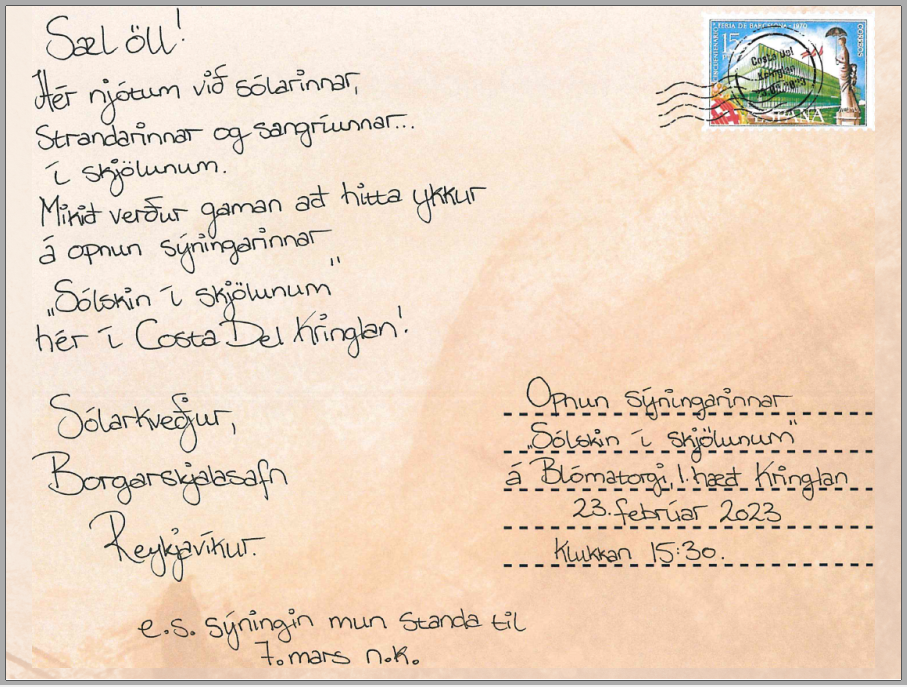 Sæl öll!
Hér njótum við sólarinnar,
Strandarinnar og sangríunnar...
í skjölunum.
Mikið verður gaman að hitta ykkur
á opnun sýningarinnar
„Sólskin í skjölunum"
hér í Costa Del Kringlan!
Sólarkveðjur,
Borgarskjalasafn
Reykjavíkur.
e.s. sýningin mun standa til
7. mars n.k.
FERIA DE BARCELONA - 1970
CORREOS
15
Costa del
Kringlan
ESPAÑA
Opnun sýningarinnar
„Sólskin í skjölunum"
á Blómatorgi, 1. hæð Kringlan
23. febrúar 2023
Klukkan 15:30.